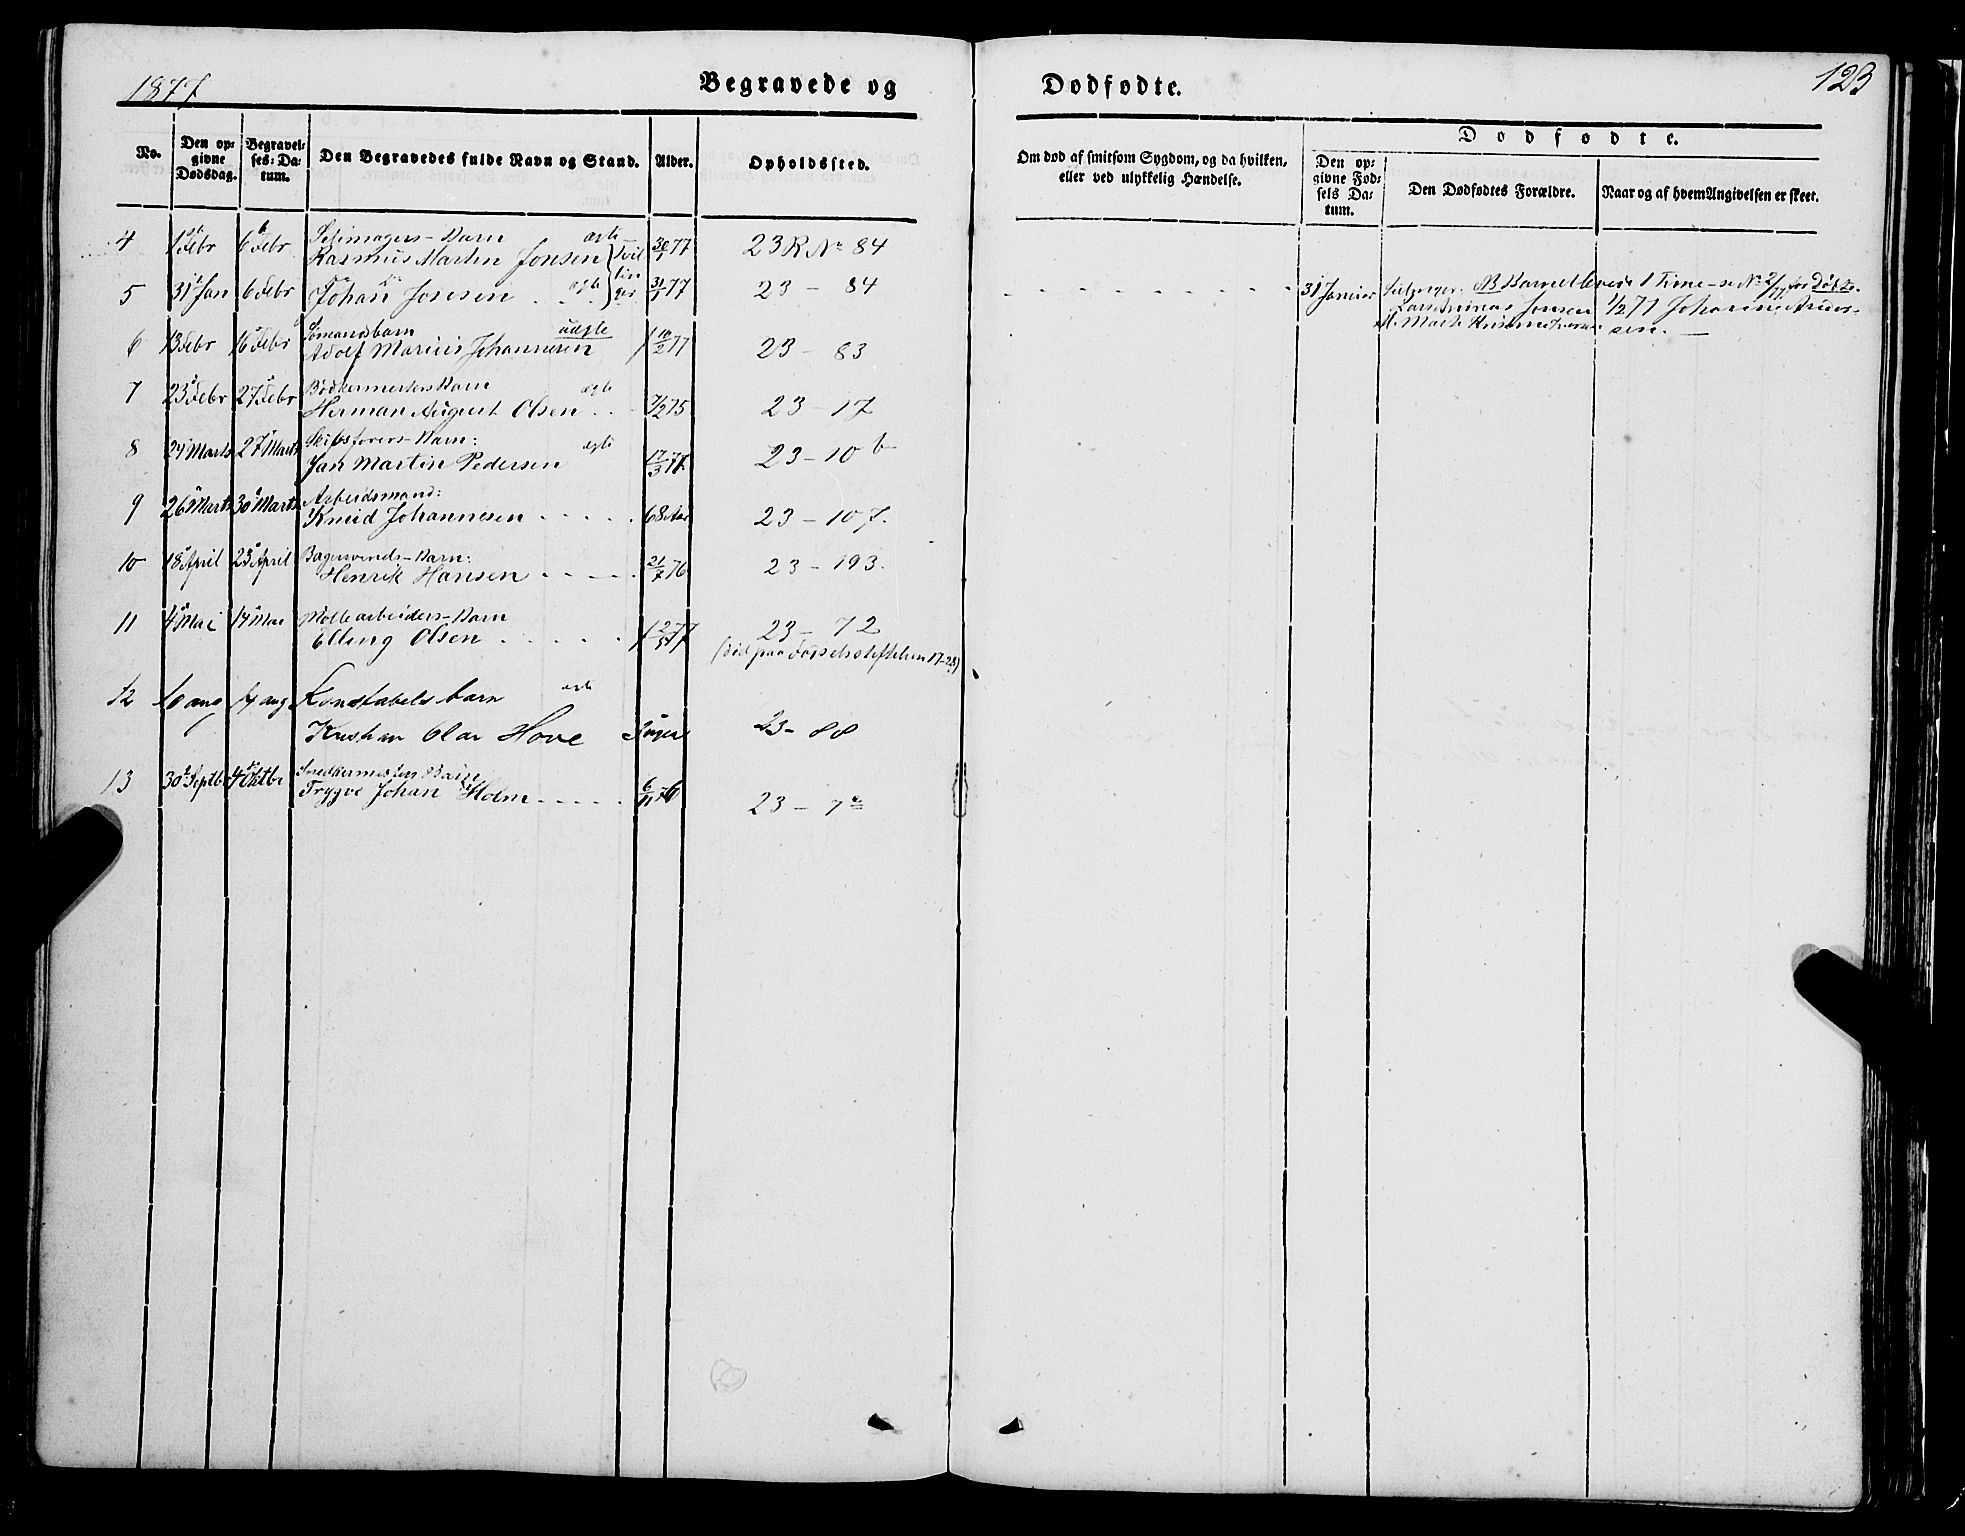 1877
Begravede og
Dødfødte.
123
No.
Den op-
givne
Dødsdag.
Begravel-
ses-Da-
tum.
Den Begravedes fulde Navn og Stand.
Alder.
Opholdssted.
Om død af smitsom Sygdom, og da hvilken,
eller ved ulykkelig Hændelse.
Dødfødte.
Den op-
givne Fød-
sels Da-
tum.
Den Dødfødtes Forældre.
Naar og af hvem Angivelsen er skeet.
4 1 Febr 6 Febr Barn ægte
Rasmus Martin Jonsen 30/1 77 23 R No 84
Tvil
lin
ger
5 31 Jan 6 Febr Johan Jonsen ægte 31/1 77 23 – 84
31 Januar NB Barnet levede 1 Time – se No 2/77 for Døbte
Jonsen 1/2 77 Johanne Ander-
sen.
6 13 Febr 16 Febr Sømands barn uægte
Adolf Marius Johannesen 10/2 77 23 – 83
7 23 Febr 27 Febr Bødkermesters Barn ægte
Herman August Olsen 7/2 75 23 – 17
8 24 Marts 27 Marts Skibsførers – Barn: ægte
Jan Martin Pedersen 17/3 77 23 – 10 b
9 26 Marts 30 Marts Arbeidsmand:
Knud Johannesen 68 Aar 23 – 107.
10 18 April 23 April Bagersvends – Barn:
Henrik Hansen 21/7 76 23 – 193.
11 4 Mai 14 Mai Møllearbeiders – Barn
Elling Olsen 2/5 77 23 – 72
(død paa Fødselsstiftelsen 17–23)
12 10 aug 14 aug Konstabels barn ægte
Kristian Olai Hove 23 – 88
13 30 Septbr 4 Oktbr Snedkermesters Barn
Trygve Johan Holm 6/11 76 23 – 7 a